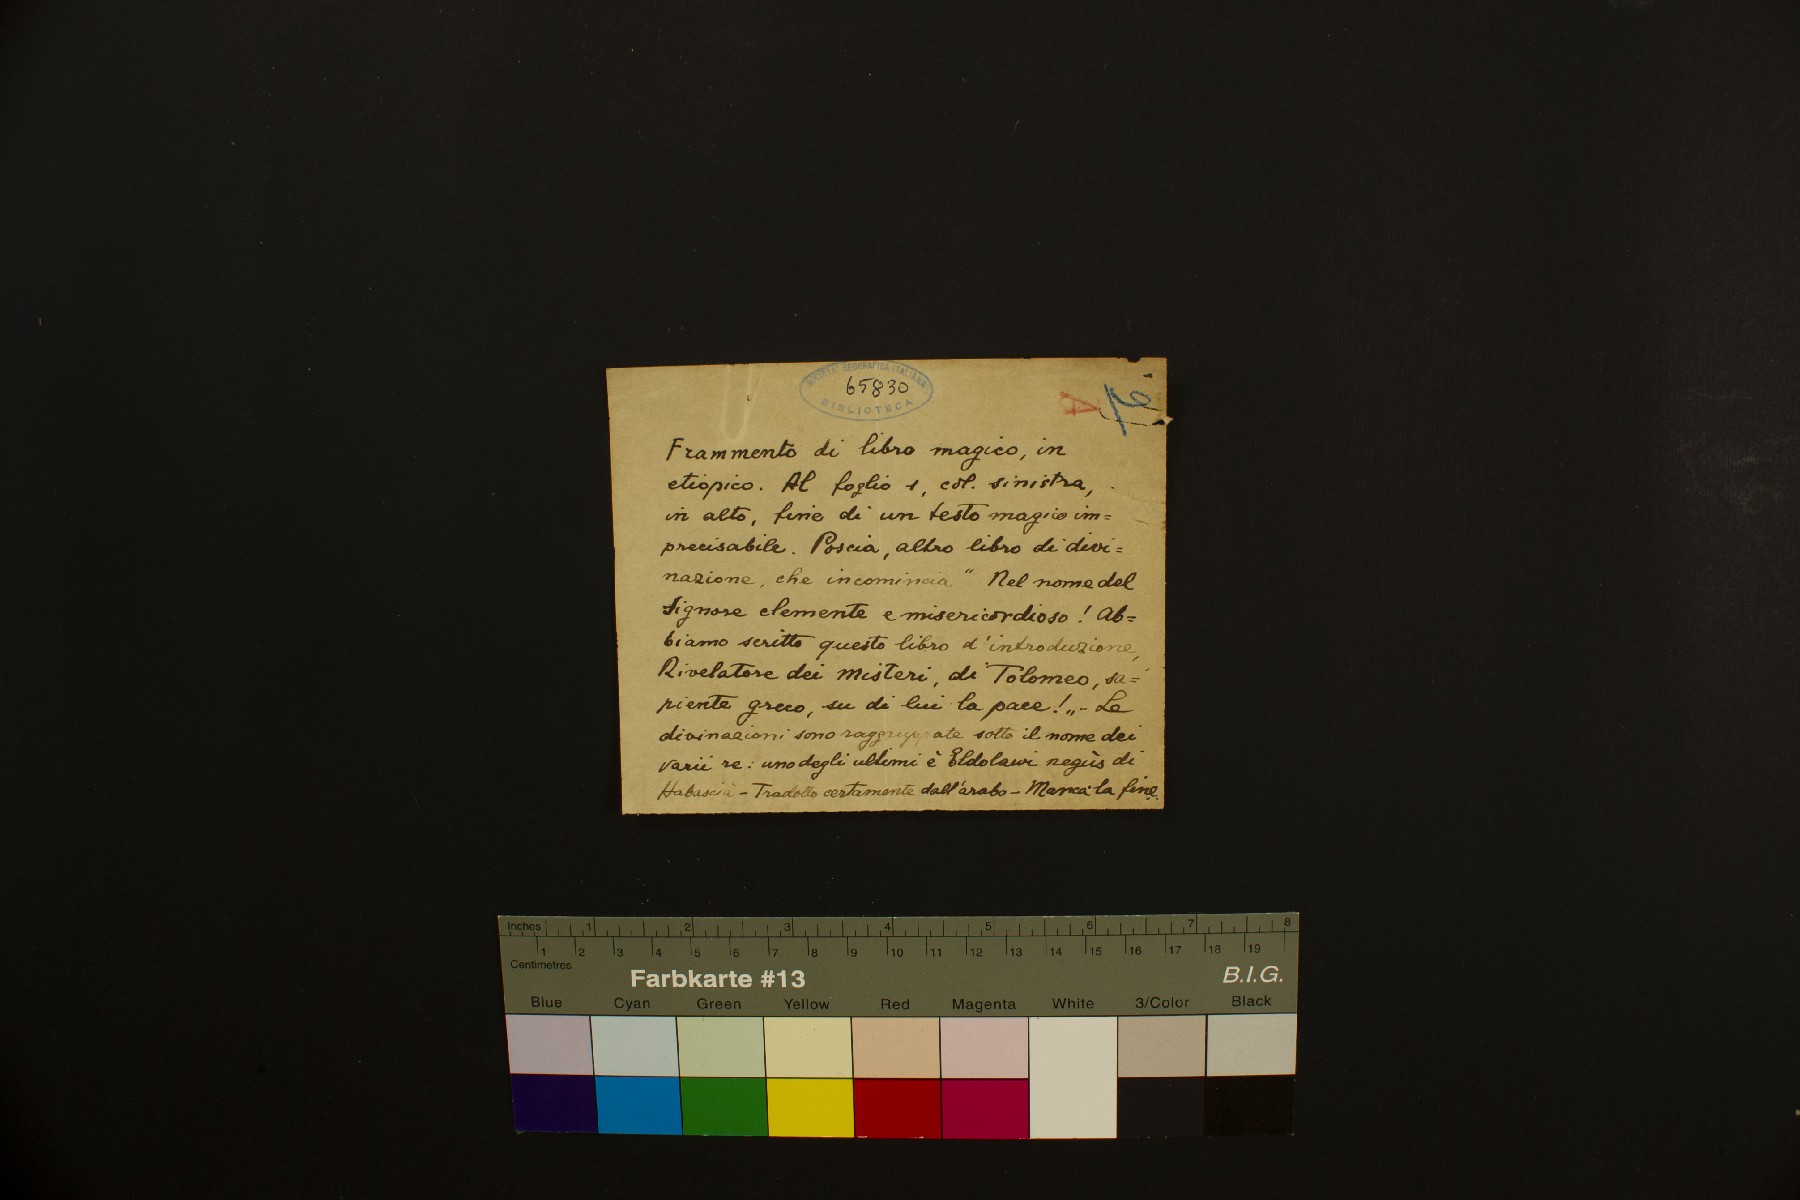 SOCIETÀ GEOGRAFICA ITALIANA
65830
BIBLIOTECA
Frammento di libro magico, in
etiopico. Al foglio 1, col. sinistra,
in alto, fine di un testo magico im=
precisabile. Poscia, altro libro di divi=
nazione, che incomincia " Nel nome del
Signore clemente e misericordioso! Ab=
biamo scritto questo libro d'introduzione,
Rivelatore dei misteri, di Tolomeo, sa=
piente greco, su di lui la pace! „- Le
divinazioni sono raggruppate sotto il nome dei
varii re: uno degli ultimi è Eldolawi negùs di
Habascià - Tradotto certamente dall'arabo - Manca la fine.
Inches 1 2 3 4 5 6 7 8
1 2 3 4 5 6 7 8 9 10 11 12 13 14 15 16 17 18 19
Centimetres
Farbkarte #13 B.I.G.
Blue Cyan Green Yellow Red Magenta White 3/Color Black